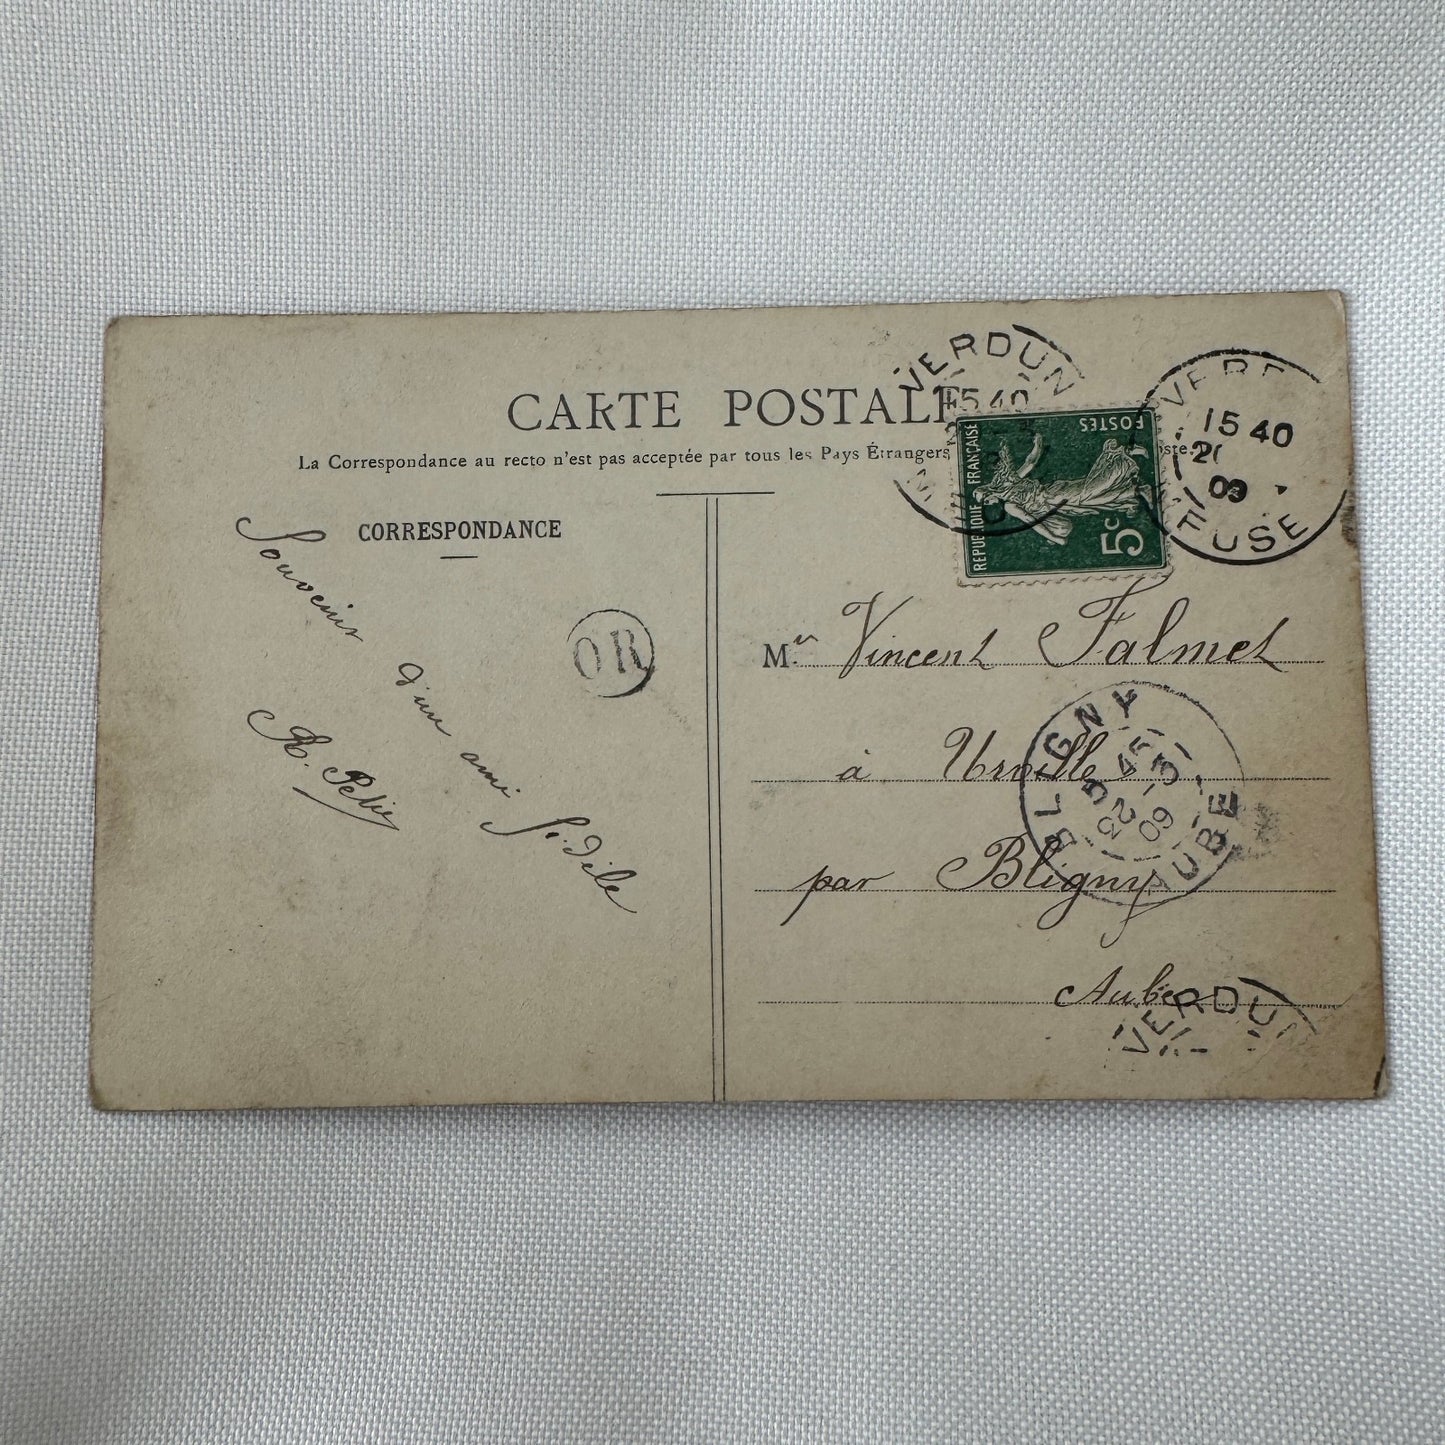 CARTE POSTALE
La Correspondance au recto n'est pas acceptée par tous les Pays Étrangers
CORRESPONDANCE
VERDUN
15 40
VERD
15 40
09
MEUSE
POSTES
REPUBLIQUE FRANÇAISE
5c
Souvenir
d'un ami fidèle
OR
Mr Vincent Falmet
à Urville
par Bligny
Aube
BLIGNY
5 45
22 - 3
09
AUBE
VERDUN